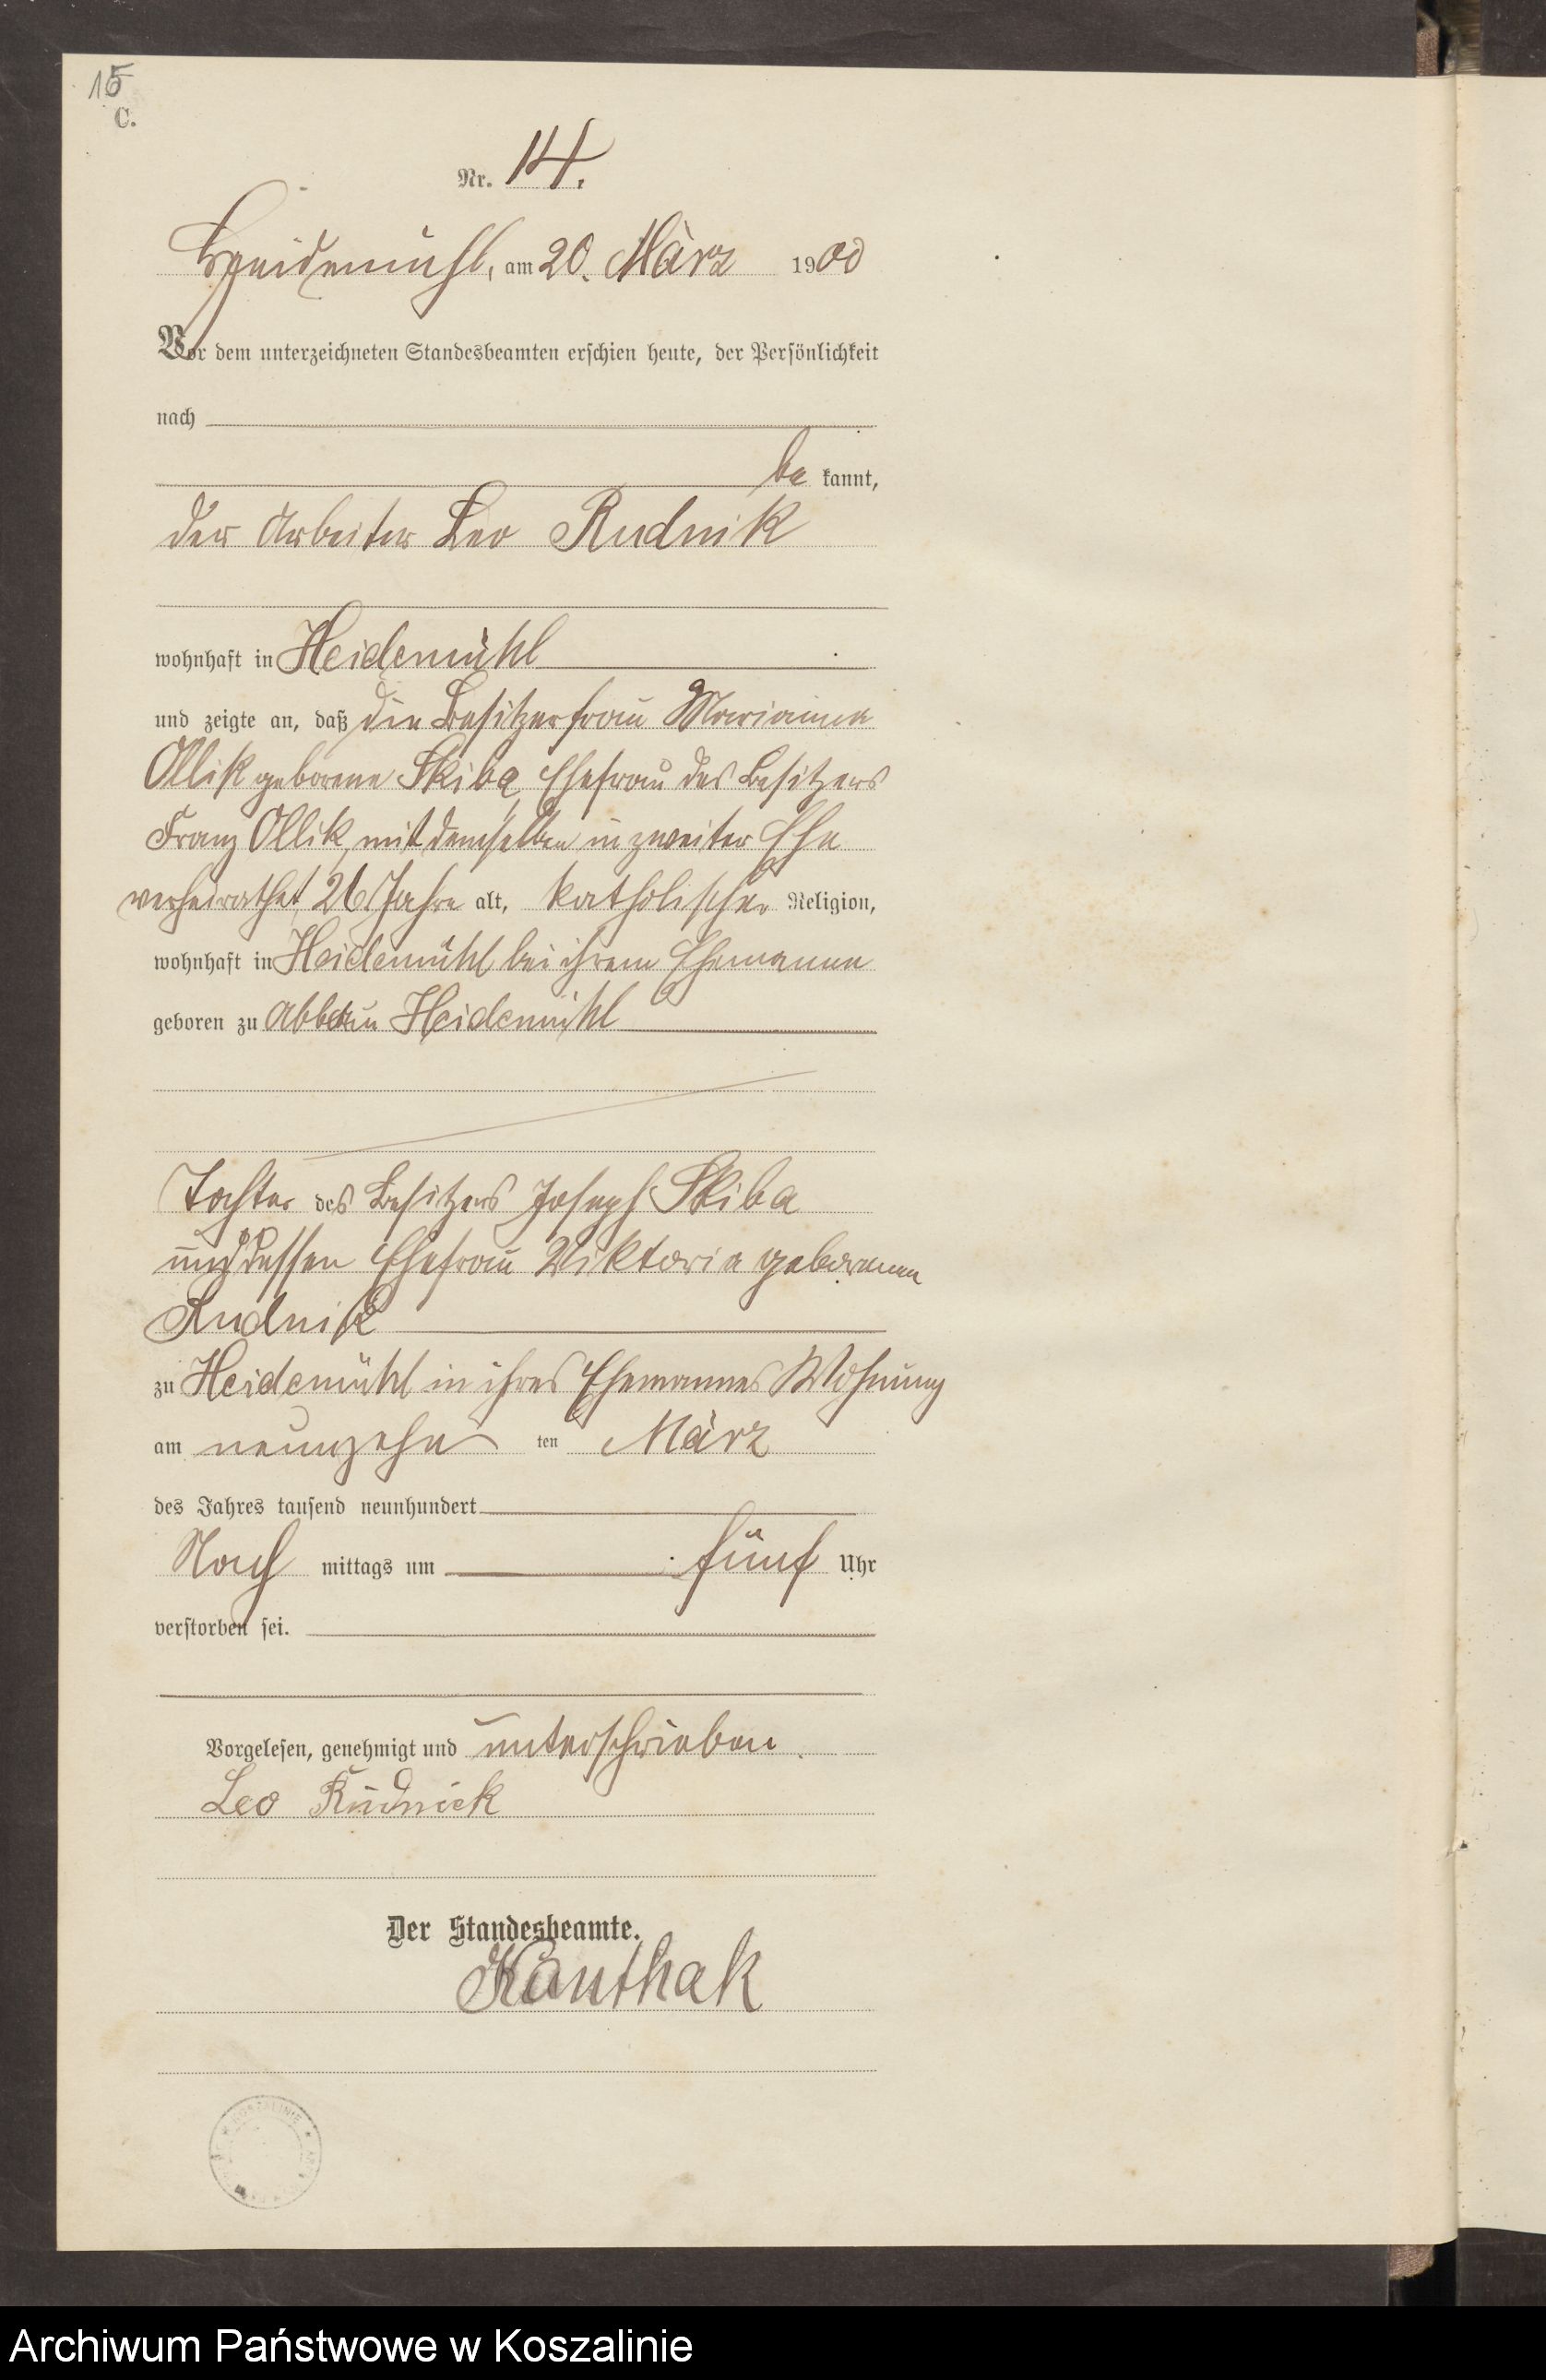 15
C.
Nr. 14.
Heidemühl, am 20. März 1900
Vor dem unterzeichneten Standesbeamten erschien heute, der Persönlichkeit
nach
be kannt,
der Arbeiter Leo Rudnik
wohnhaft in Heidemühl
und zeigte an, daß die Besitzerfrau Marianna
Ollik geborene Skiba, Ehefrau des Besitzers
Franz Ollik, mit demselben in zweiter Ehe
verheirathet, 26 Jahre alt, katholischer Religion,
wohnhaft in Heidemühl bei ihrem Ehemanne
geboren zu Abbau Heidemühl
Tochter des Besitzers Joseph Skiba
und dessen Ehefrau Viktoria geborenen
Rudnik
zu Heidemühl in ihres Ehemannes Wohnung
am neunzehn ten März
des Jahres tausend neunhundert
Nach mittags um fünf Uhr
verstorben sei.
Vorgelesen, genehmigt und unterschrieben.
Leo Rudnick
Der Standesbeamte.
Kauthak
Archiwum Państwowe w Koszalinie